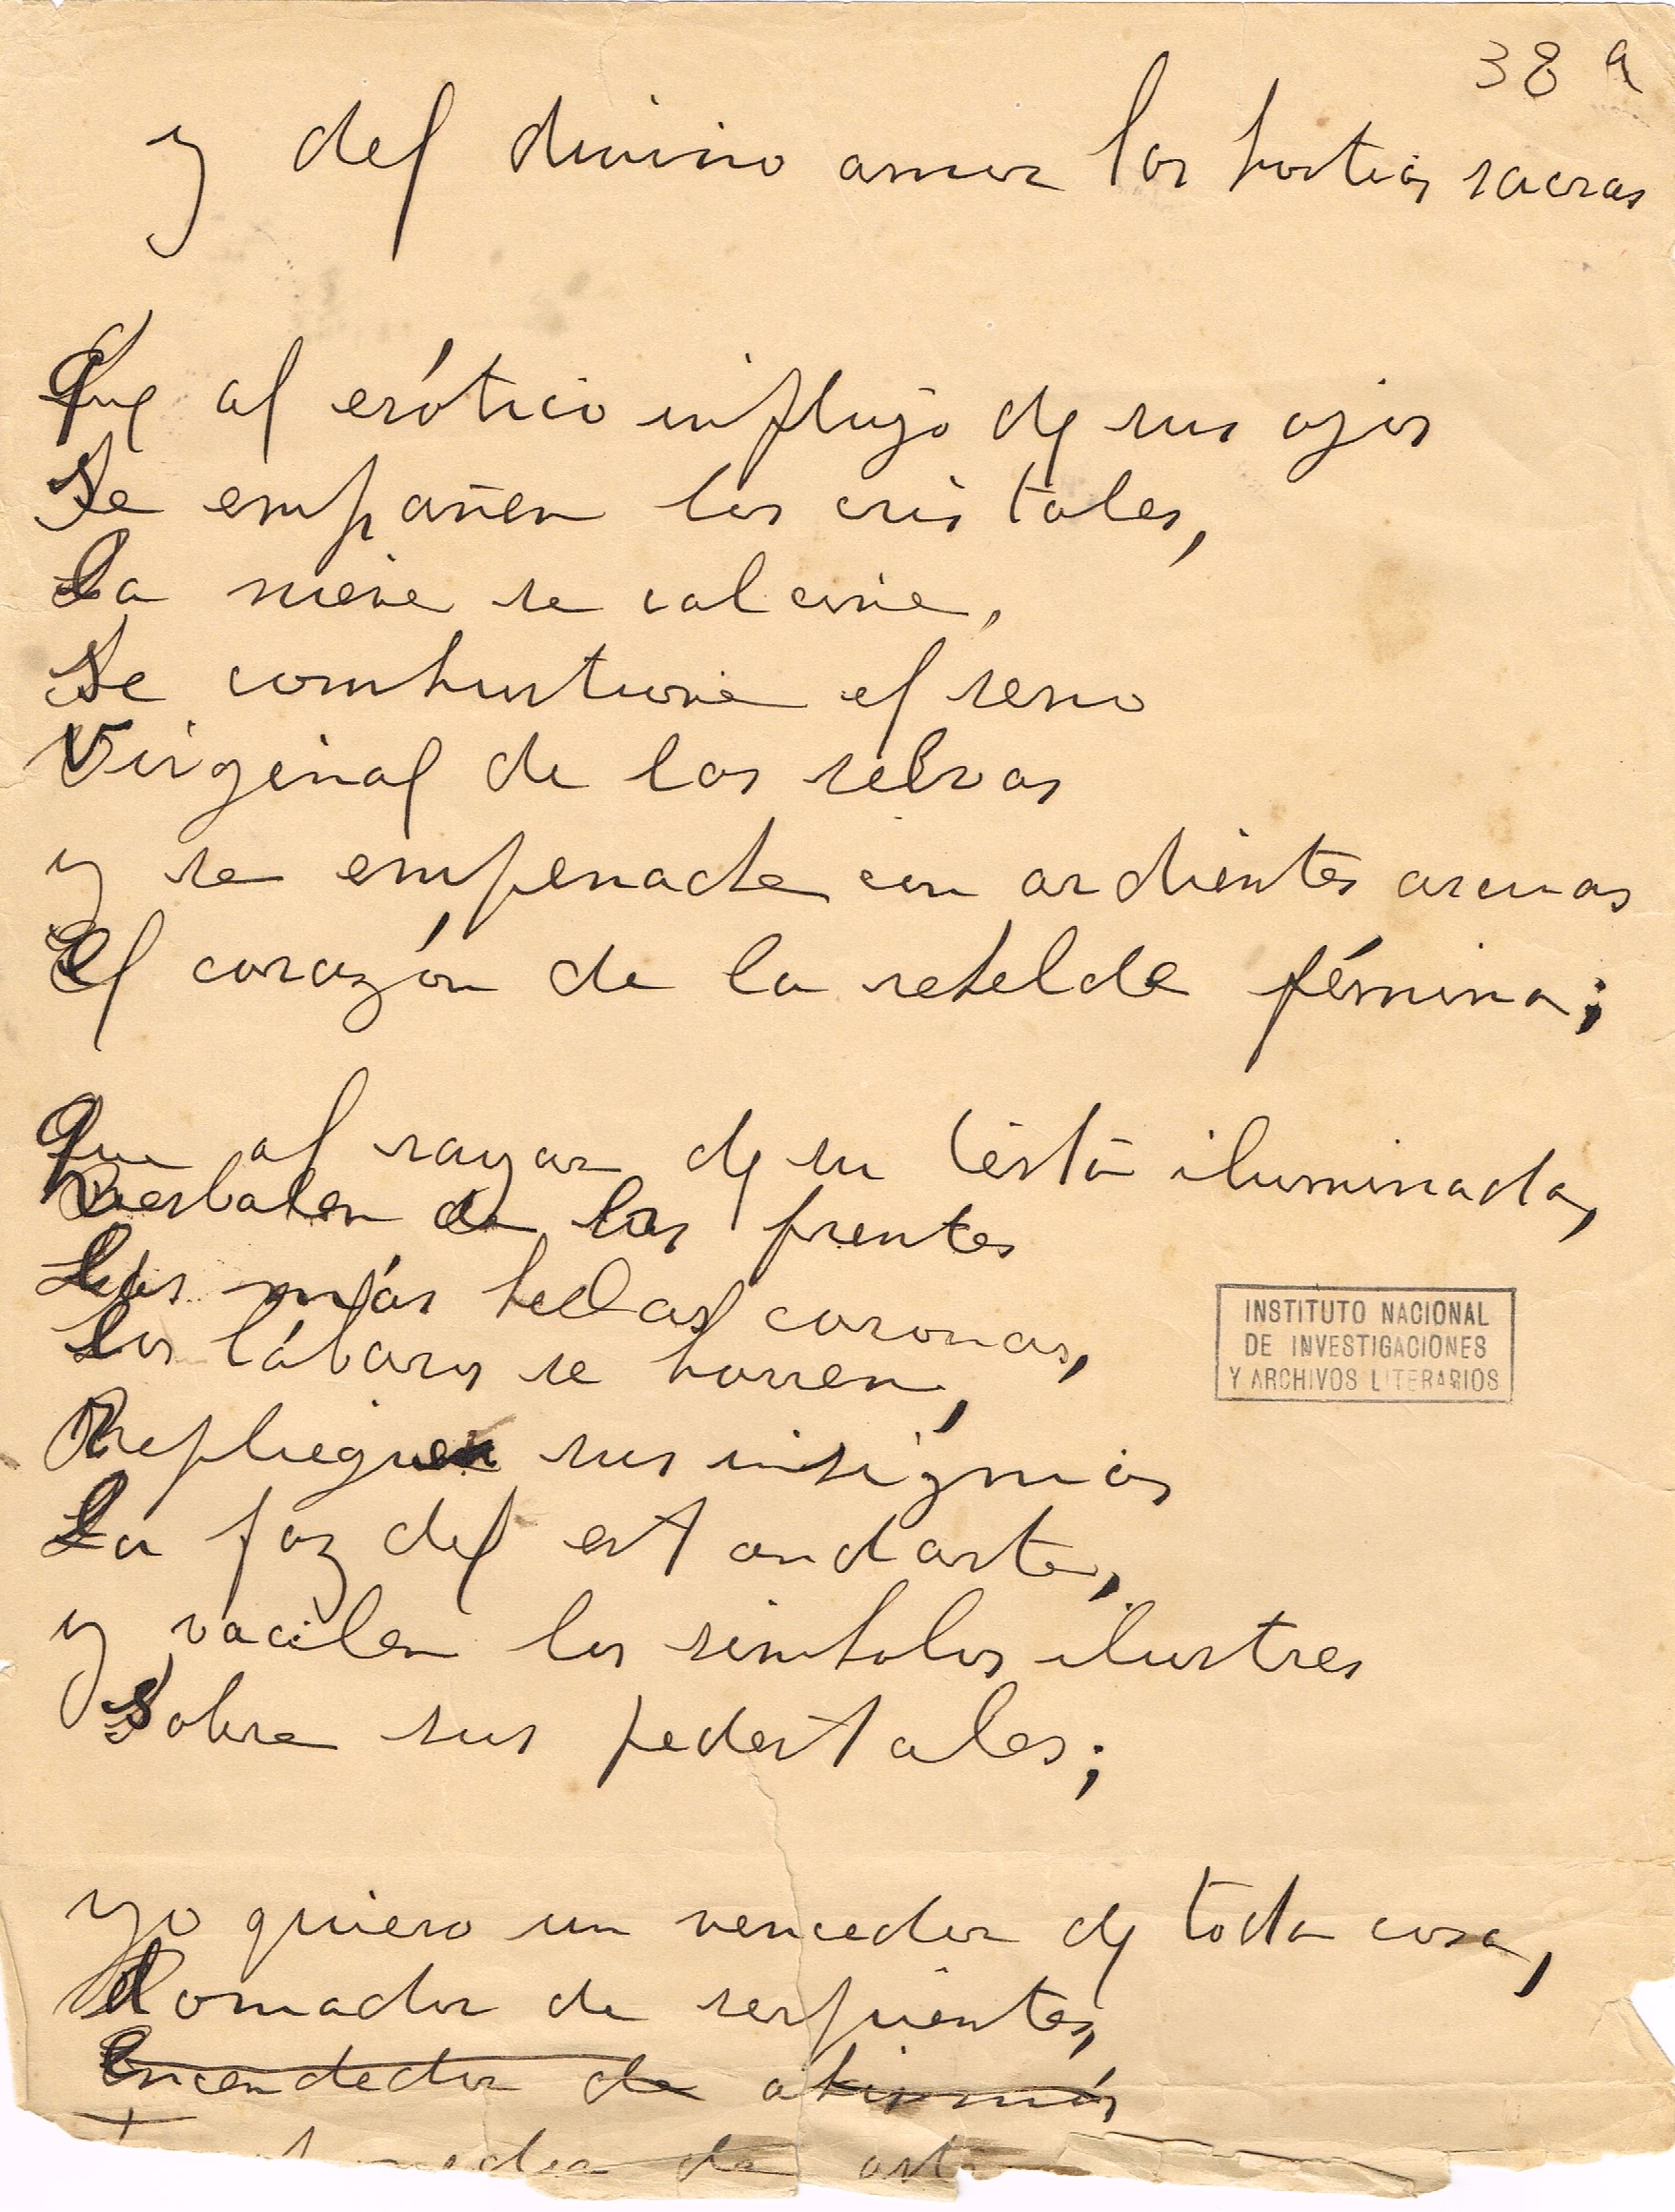 38 a
y del divino amor las hostias sacras
Que al erótico influjo de sus ojos
Se empañen los cristales,
La nieve se calcine,
Se combustione el seno
Virginal de las selvas
y se empenache con ardientes arenas
El corazón de la rebelde fémina;
Que al rayar de su testa iluminada,
Resbalen de las frentes
Las más bellas coronas,
Los lábaros se borren,
Repliegue sus insignias
La faz del estandarte,
y vacilen los simbolos ilustres
Sobre sus pedestales;
INSTITUTO NACIONAL
DE INVESTIGACIONES
Y ARCHIVOS LITERARIOS
yo quiero un vencedor de toda cosa,
Domador de serpientes,
Encendedor de abismos
de